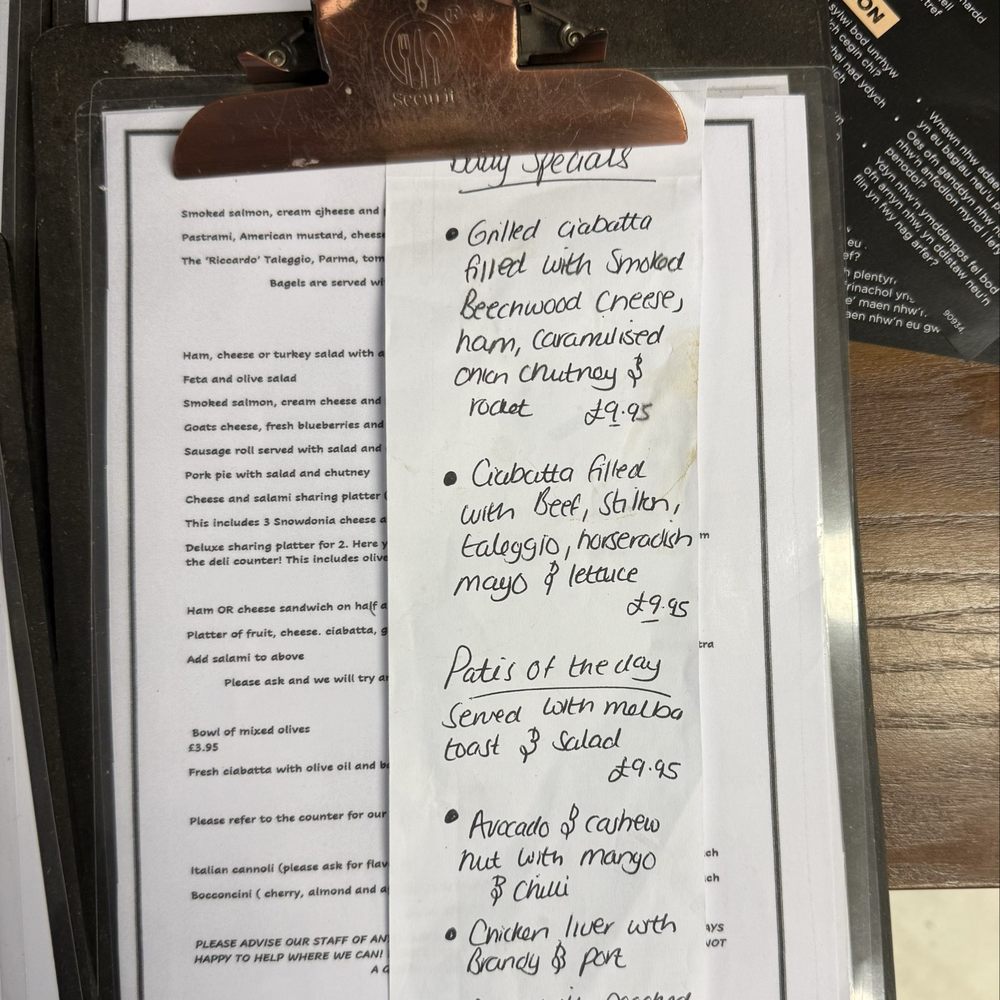 Daily Specials
• Grilled ciabatta
filled with Smoked
Beechwood Cheese,
ham, Caramulised
onion chutney &
rocket £9.95
• Ciabatta filled
with Beef, Stilton,
taleggio, horseradish
mayo & lettuce
£9.95
Patis of the day
Served with melba
toast & Salad
£9.95
• Avocado & cashew
nut with mango
& Chilli
• Chicken liver with
Brandy & port
Smoked salmon, cream cjheese and
Pastrami, American mustard, cheese
The 'Riccardo' Taleggio, Parma, tom
Bagels are served wi
Ham, cheese or turkey salad with a
Feta and olive salad
Smoked salmon, cream cheese and
Goats cheese, fresh blueberries and
Sausage roll served with salad and
Pork pie with salad and chutney
Cheese and salami sharing platter (
This includes 3 Snowdonia cheese a
Deluxe sharing platter for 2. Here y
the deli counter! This includes olive
Ham OR cheese sandwich on half a
Platter of fruit, cheese. ciabatta, g
Add salami to above
Please ask and we will try ar
Bowl of mixed olives
£3.95
Fresh ciabatta with olive oil and ba
Please refer to the counter for our
Italian cannoli (please ask for flav
Bocconcini ( cherry, almond and a
PLEASE ADVISE OUR STAFF OF AN
HAPPY TO HELP WHERE WE CAN!
A G
m
tra
ch
ch
AYS
NOT
Securit
ON
sylwi bod unrhyw
cegin chi?
hai nad ydych
Wnawn nhw eich
yn eu bagiau neu'u p
Oes ofn ganddyn nhw
nhw'n anfodlon mynd i'r
penodol?
Ydyn nhw'n ymddangos fel bod
ofn arnyn nhw, yn ddistaw neu'n
flin yn fwy nag arfer?
plentyr,
e' maen nhw'r.
aen nhw'n eu gw
90934